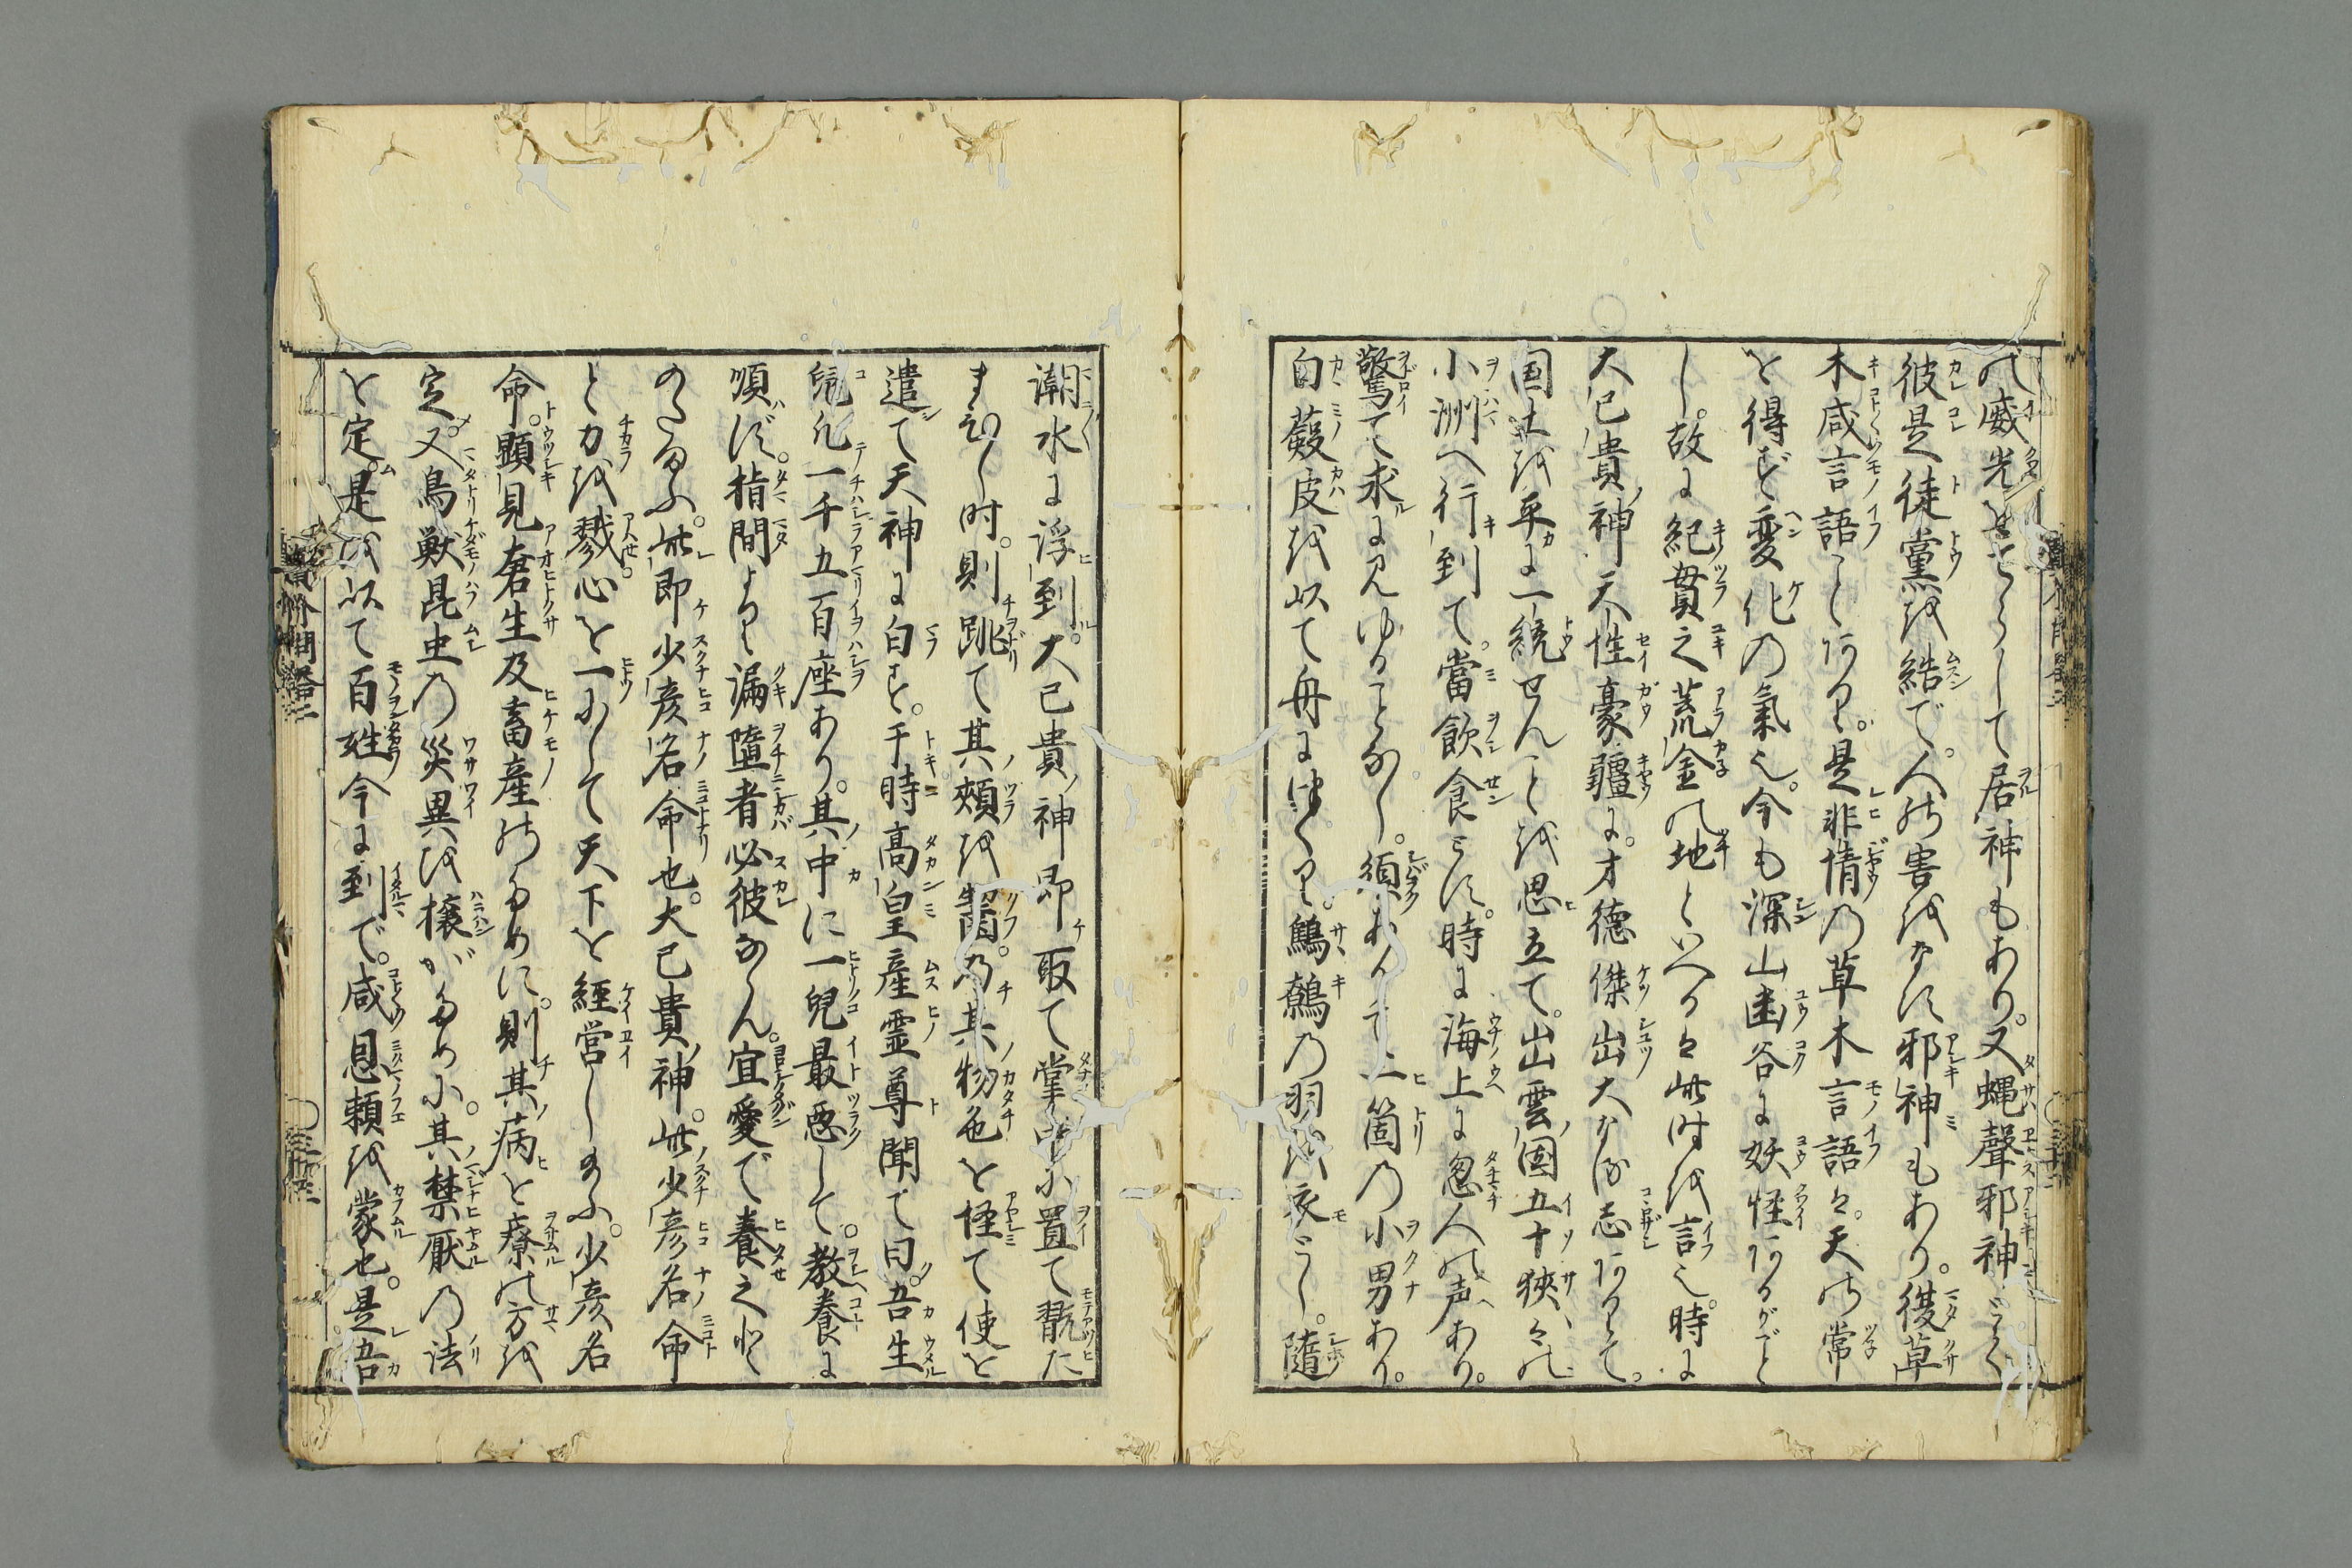 の威光をてらして居神もあり。又蝿聲邪神
彼是徒黨を結で。人の害をなす邪神もあり。復草
木咸言語ことありき。是非情の草木言語は。天の常
を得ど変化の氣也。今も深山幽谷に妖怪あるがごと
し。故に紀貫之荒金の地といへるは此時を言也。時に
大己貴神天性豪彊に。才德傑出大なる志ありて。
国土を平に一統せんことを思立て。出雲国五十狹々の
小洲へ行到て。當飲食とす。時に海上に忽人の声あり。
驚て求に見ゆることなし。須ありて一箇の小男あり。
白蘞皮を以て舟につくり。鷦鷯の羽を衣とし。隨
潮水に浮到。大己貴神即取て掌中に置て翫た
まひし时。則跳て其頰を齧。乃其物色を怪て使を
遣て天神に白す。于時高皇産霊尊聞て曰。吾生
兒凡一千五百座あり。其中に一兒最惡して。教養に
順ず。指間より漏墮者必彼ならん。宜愛で養之と
のたまふ。此即少彦名命也。大己貴神。此少彦名命
と力を戮心を一にして天下を経営し給ふ。少彦名
命。顯見蒼生及畜産のために。則其病を療の方を
定。又鳥獣昆虫の災異を攘がために。其禁厭の法
を定。是を以て百姓今に到で。咸恩頼を蒙也。是吾